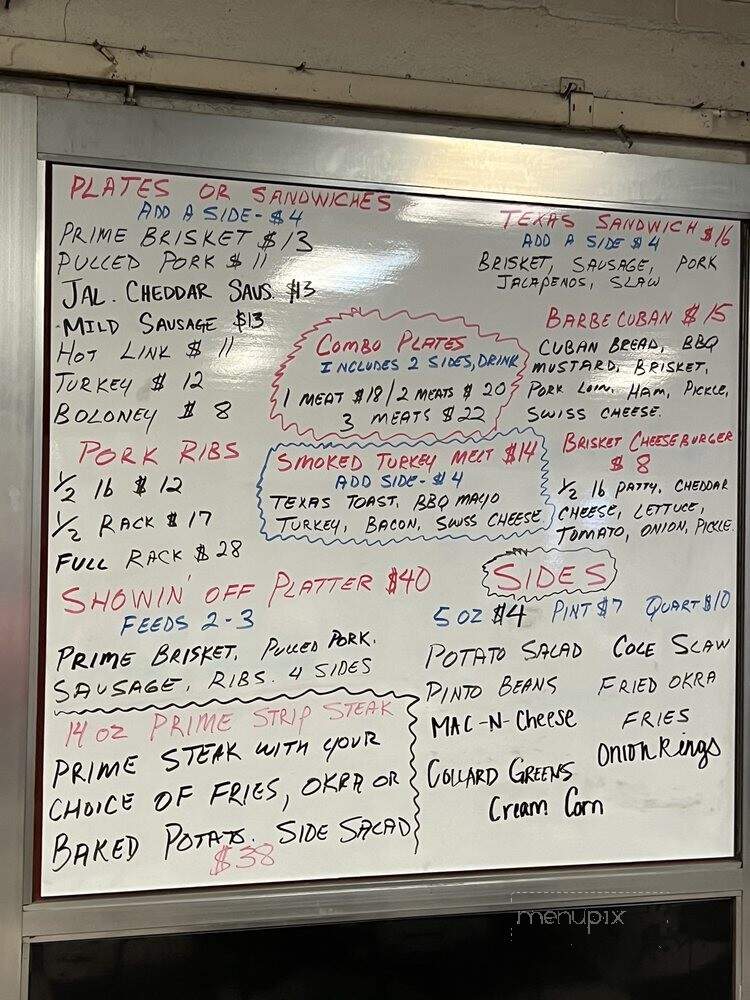 PLATES OR SANDWICHES
ADD A SIDE - $4
PRIME BRISKET $13
PULLED PORK $11
JAL. CHEDDAR SAUS. $13
MILD SAUSAGE $13
HOT LINK $11
TURKEY $12
BOLONEY $8
PORK RIBS
1/2 lb $12
1/2 RACK $17
FULL RACK $28
SHOWIN' OFF PLATTER $40
FEEDS 2-3
PRIME BRISKET, PULLED PORK.
SAUSAGE, RIBS. 4 SIDES
14 OZ PRIME STRIP STEAK
PRIME STEAK WITH YOUR
CHOICE OF FRIES, OKRA OR
BAKED POTATO. SIDE SALAD
$38
COMBO PLATES
INCLUDES 2 SIDES, DRINK
1 MEAT $18/2 MEATS $20
3 MEATS $22
SMOKED TURKEY MELT $14
ADD SIDE - $4
TEXAS TOAST, BBQ MAYO
TURKEY, BACON, SWISS CHEESE
TEXAS SANDWICH $16
ADD A SIDE $4
BRISKET, SAUSAGE, PORK
JALAPENOS, SLAW
BARBECUBAN $15
CUBAN BREAD, BBQ
MUSTARD, BRISKET,
PORK LOIN, HAM, PICKLE,
SWISS CHEESE.
BRISKET CHEESEBURGER
$8
1/2 lb PATTY, CHEDDAR
CHEESE, LETTUCE,
TOMATO, ONION, PICKLE.
SIDES
5 OZ $4 PINT $7 QUART $10
POTATO SALAD COLE SLAW
PINTO BEANS FRIED OKRA
MAC-N-CHEESE FRIES
COLLARD GREENS ONION RINGS
Cream Corn
menupix